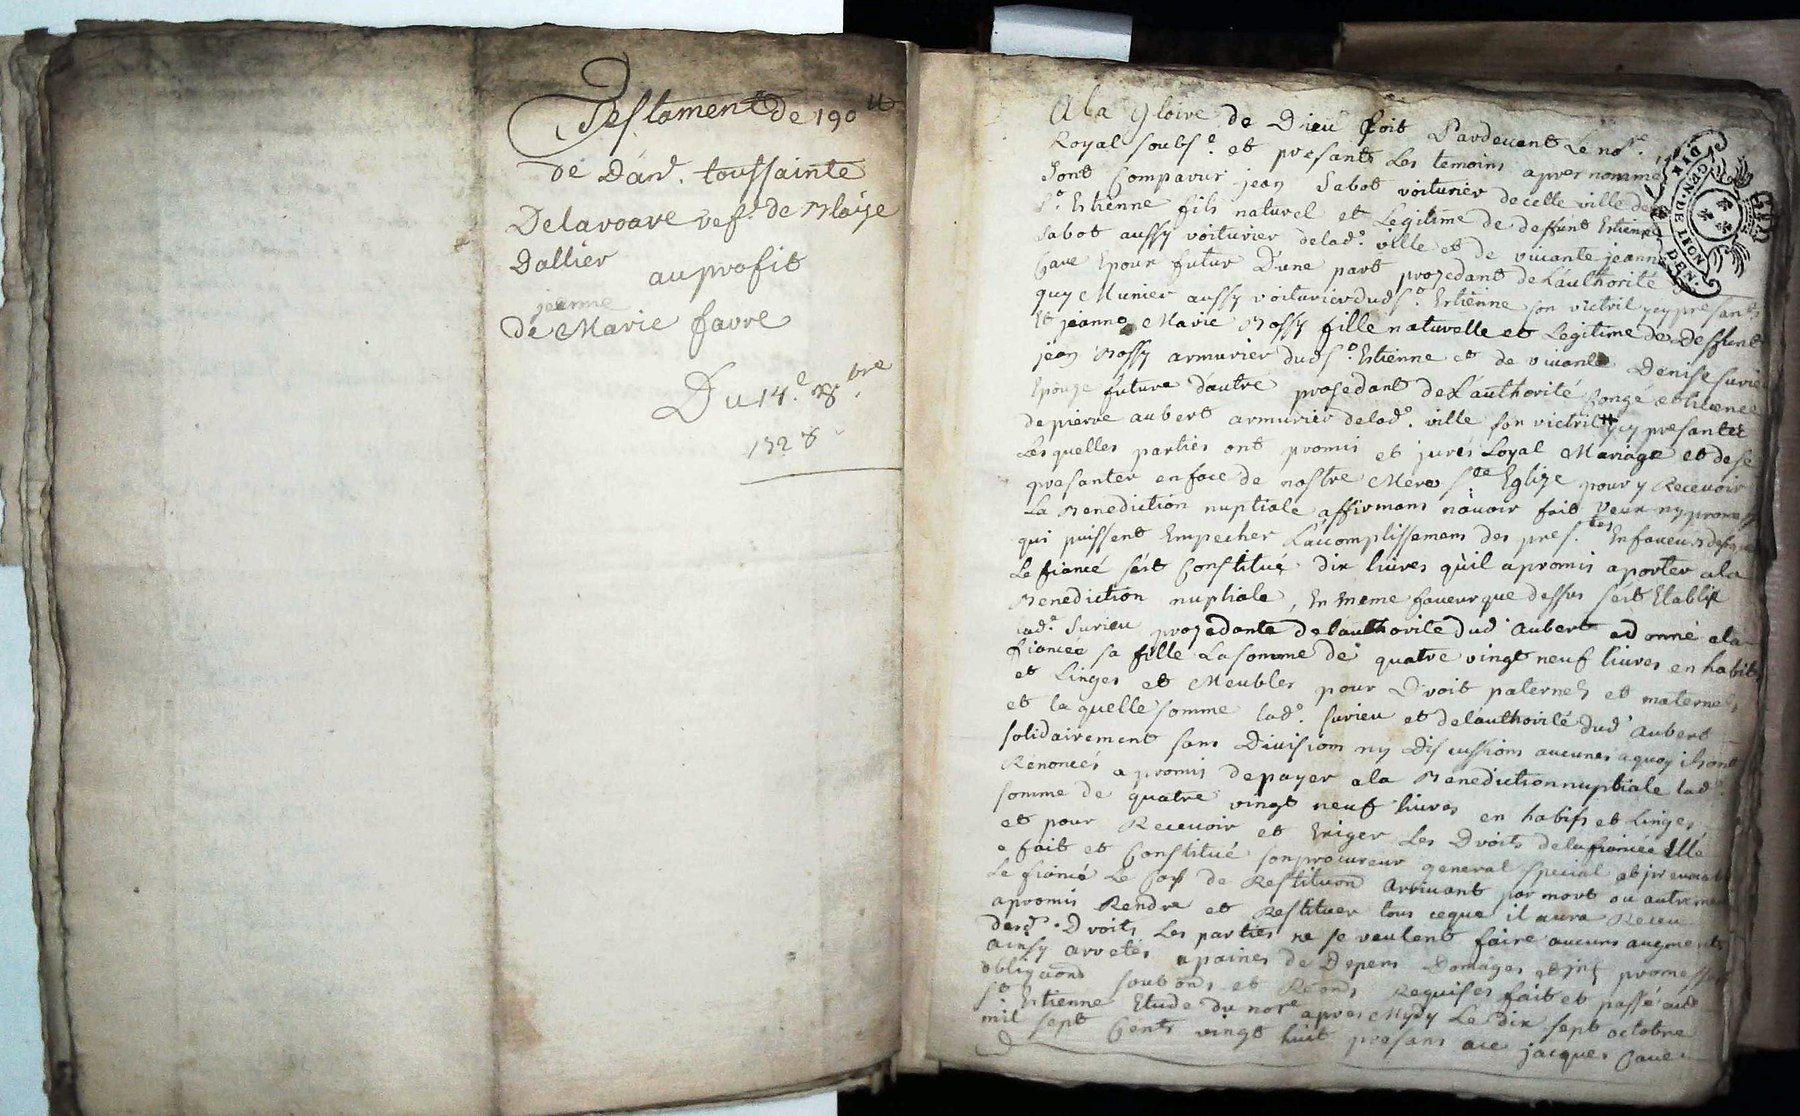 Testament de 190 ₶
de Dan.e toussainte
Delavoare vef.e de Blaise
Dallier au profit
jeanne
de Marie favre
Du 14.e 8.bre
1728
A la Gloire de Dieu soit Pardevant Le no.re
Royal soubs.e et presants Les temoins apres nommes
Sont Comparus jean Sabot voiturier de cette ville de
S.t Estienne fils naturel et Legitime de deffunt Estienne
Sabot aussy voiturier de lad.e ville et de vivante jeanne
Cave Epoux futur D'une part prozedant de L'authorité
quy Munier aussy voiturier dud S.t Estienne son victril ycy presant
Et jeanne Marie Bossy fille naturelle et Legitime de Deffunt
jean Bossy armurier dud S.t Estienne et de vivante Denise Surieu
Epouze future d'autre prozedant de L'authorité Congé et licence
de pierre aubert armurier de lad.e ville son victril ycy presantes
Lesquelles parties ont promis et jurés Loyal Mariage et de se
presanter en face de nostre Mere S.te Eglize pour y Recevoir
La Benediction nuptiale affirmans n'avoir fait veux ny promesse
qui puissent Empecher L'accomplissement des pres.tes En faveur desquelles
Le fiancé s'est Constitué dix livres qu'il a promis aporter a la
Benediction nuptiale, En meme faveur que dessus s'est Etablie
lad.e Surieu prozedante de l'authorité dud aubert a donné a la
fiancée sa fille La somme de quatre vingt neuf livres en habits
et Linges et Meubles pour Droit paternel et maternel,
et laquelle somme lad.e Surieu et de l'authorité dud aubert
solidairement sans Division ny Discussions aucunes a quoy ils ont
Renoncés a promis de payer a la Benediction nuptiale lad.e
somme de quatre vingt neuf livres en habits et Linges,
et pour Recevoir et Exiger Les Droits de la fiancée Elle
a fait et Constitué son procureur general special et jrevocable
Le fiancé Le Cas de Restituon Arrivant par mort ou autrement
a promis Rendre et Restituer tous ceque il aura Receu
desd.s Droits Les parties ne se veulent faire aucuns augments
ainsy arretés a paines de Depens Domages et jnt promesses
obligaons soubons et Reons Requises fait et passé aud
S.t Estienne Etude du no.re apres Mydy Le dix sept octobre
mil sept Cents vingt huit presans a ce jacques Cave
GEN. DE LION
DEN.